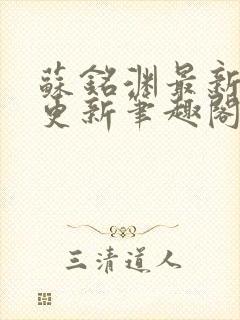 蘇銘淵最新
更新筆趣閣
三清道人